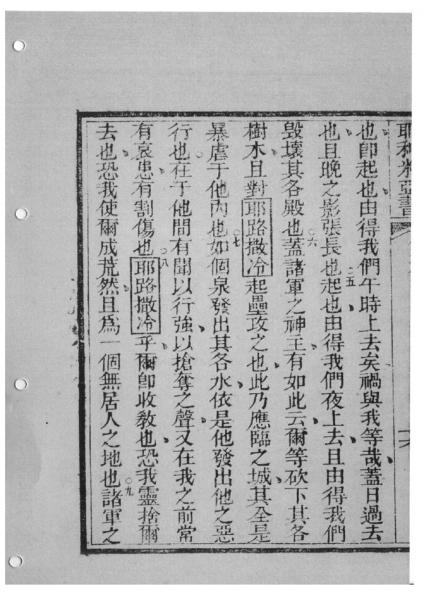 耶利米亞書
也卽起也由得我們午時上去矣禍與我等哉蓋日過去
也且晚之影張長也○五起也由得我們夜上去且由得我們
毀壞其各殿也○六蓋諸軍之神主有如此云爾等砍下其各
樹木且對耶路撒冷起壘攻之也此乃應臨之城其全是
暴虐于他內也○七如個泉發出其各水依是他發出他之惡
行也在于他間有聞以行強以搶奪之聲又在我之前常
有哀患有割傷也○八耶路撒冷乎爾卽收教也恐我靈捨爾
去也恐我使爾成荒然且爲一個無居人之地也○九諸軍之